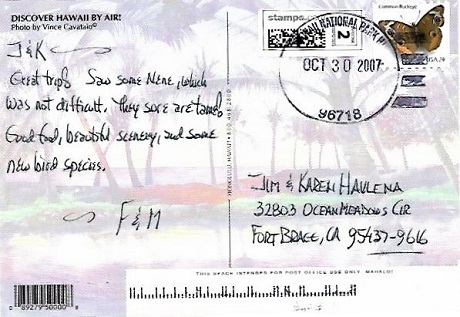 DISCOVER HAWAII BY AIR!
Photo by Vince Cavataio©
J & K
Great trip! Saw some Nene, which
was not difficult. They sure are tame!
Good food, beautiful scenery, and some
new bird species.
F & M
stamps.com
2
NATIONAL PARK HI
OCT 30 2007
96718
Common Buckeye
USA 24
JIM & KAREN HAVLENA
32803 OCEAN MEADOWS CIR
FORT BRAGG, CA 95437-9616
THIS SPACE INTENDED FOR POST OFFICE USE ONLY. MAHALO!
0 89279 50000 8